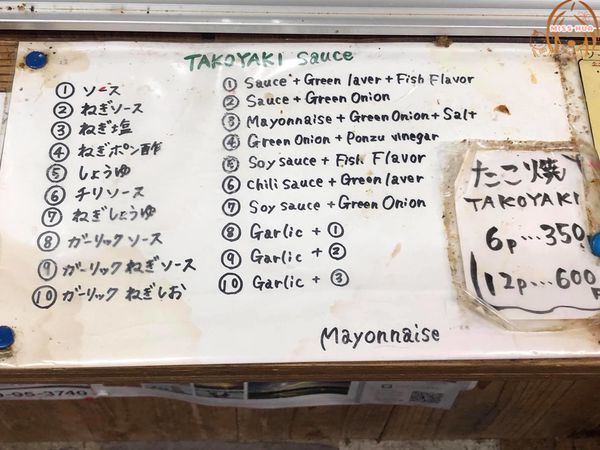 MISS HUA
TAKOYAKI Sauce
① ソース
② ねぎソース
③ ねぎ塩
④ ねぎポン酢
⑤ しょうゆ
⑥ チリソース
⑦ ねぎしょうゆ
⑧ ガーリックソース
⑨ ガーリックねぎソース
⑩ ガーリックねぎしお
① Sauce + Green laver + Fish Flavor
② Sauce + Green Onion
③ Mayonnaise + Green Onion + Salt
④ Green Onion + Ponzu vinegar
⑤ Soy sauce + Fish Flavor
⑥ Chili sauce + Green laver
⑦ Soy sauce + Green Onion
⑧ Garlic + ①
⑨ Garlic + ②
⑩ Garlic + ③
Mayonnaise
たこ焼
TAKOYAKI
6p...350
12p...600
95-3740